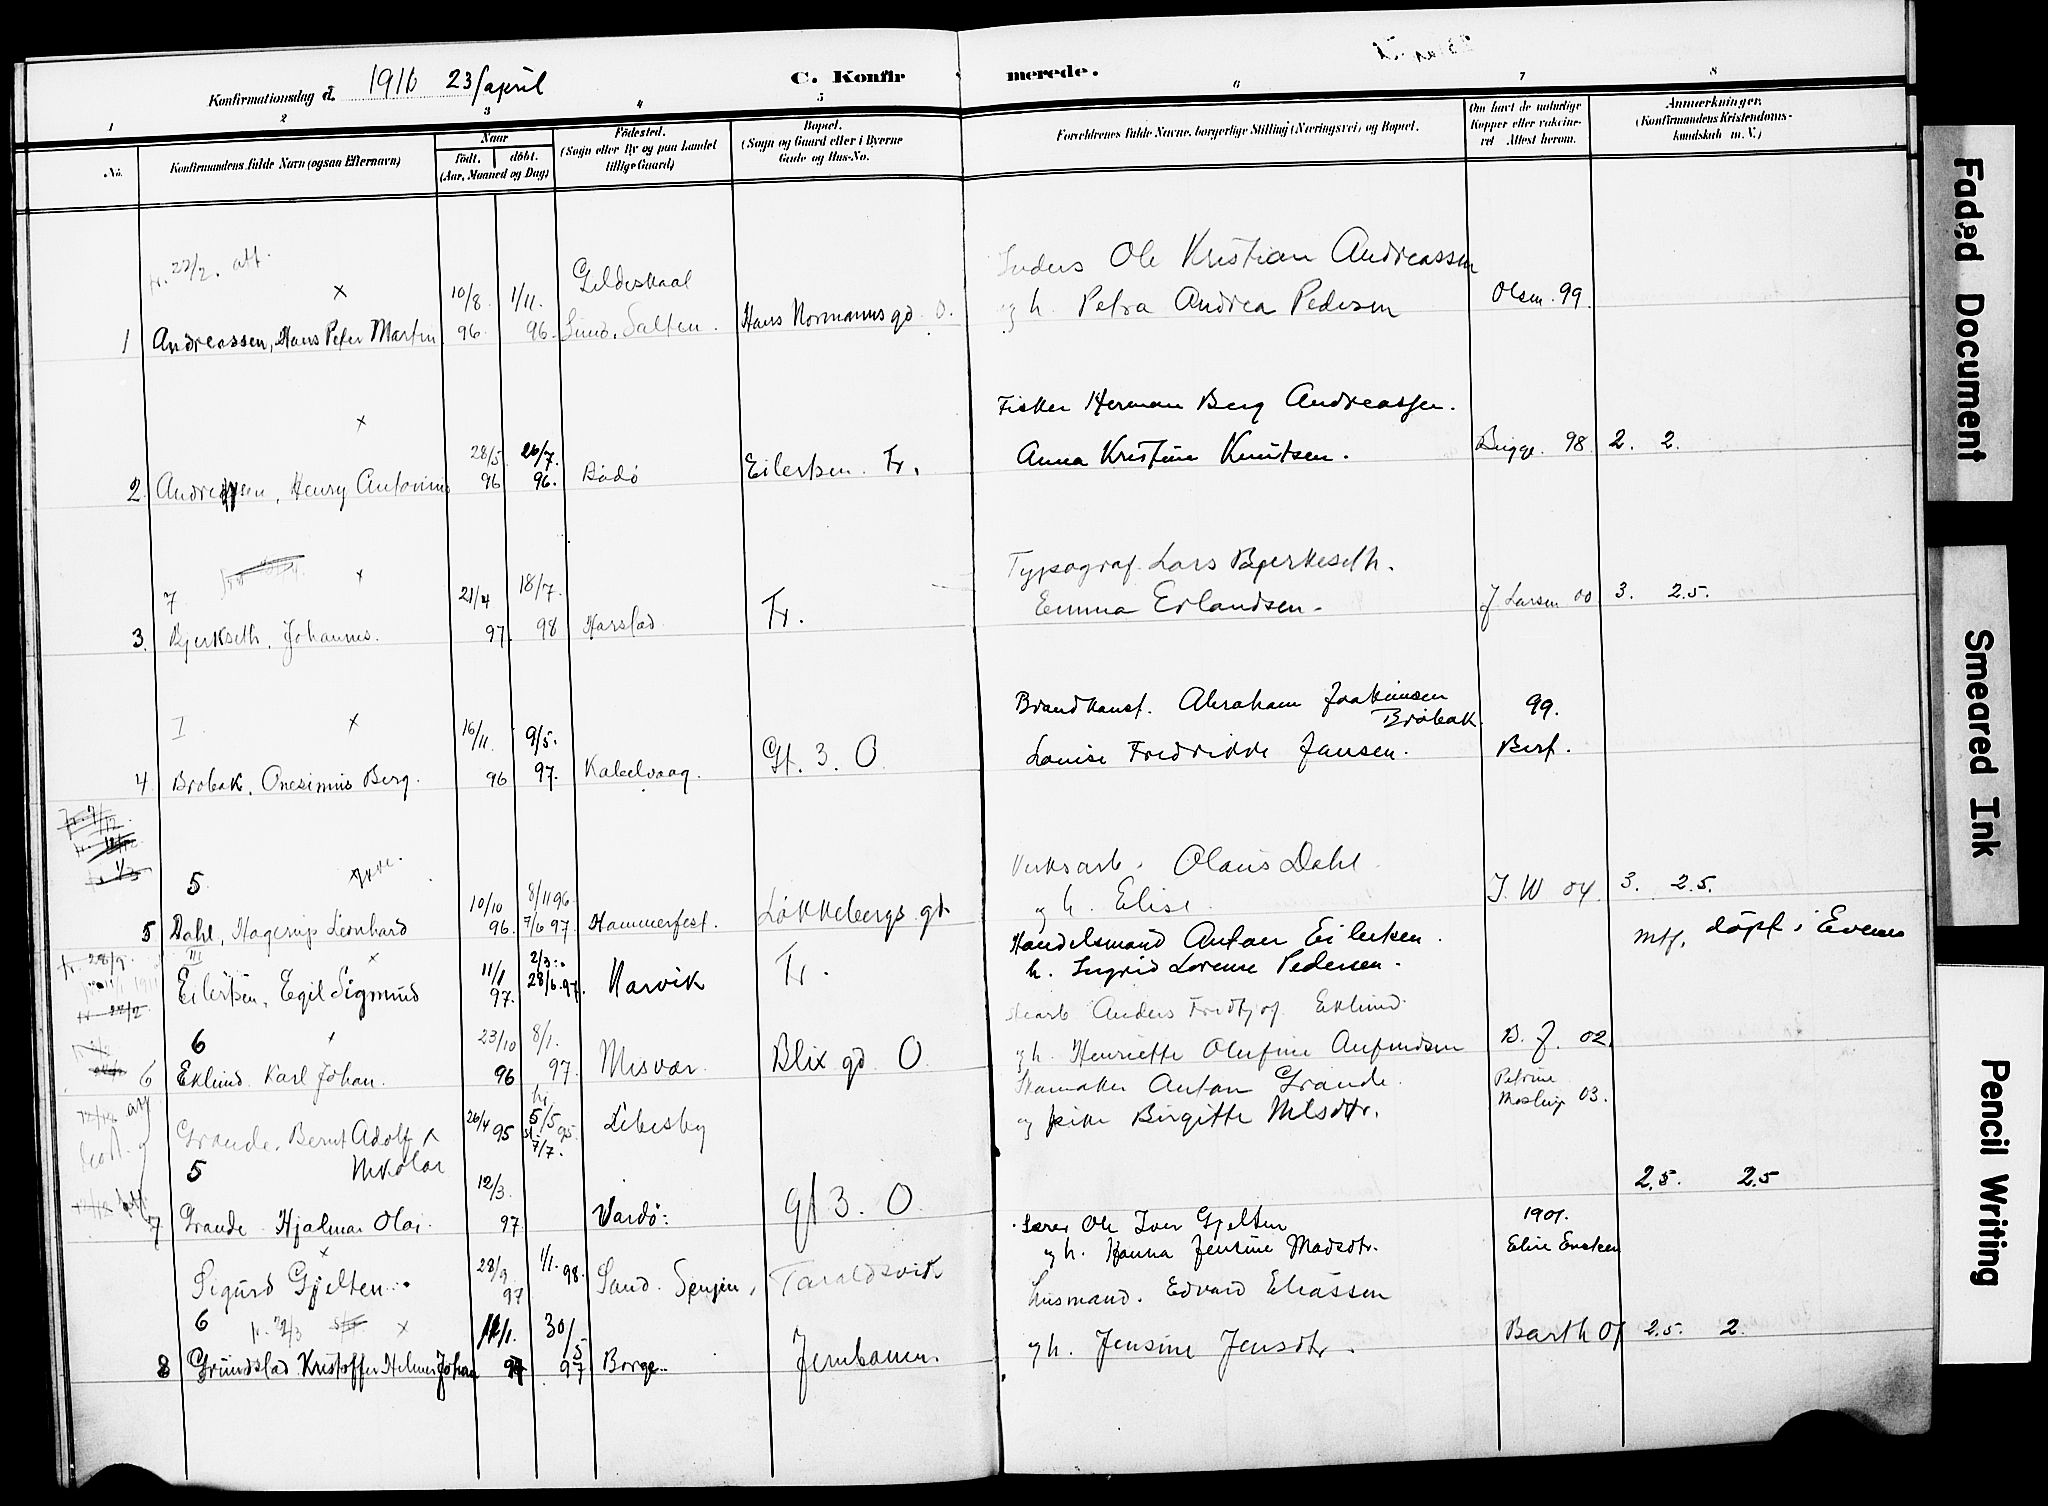 Konfirmationsdag d. 1911 23/april
C. Konfirmerede.
1 2 3 4 5 6 7 8
No.
Konfirmandens fulde Navn (ogsaa Efternavn)
Naar
født. døbt.
(Aar, Maaned og Dag)
Fødested.
(Sogn eller By og paa Landet
tillige Gaard)
Bopæl.
(Sogn og Gaard eller i Byerne
Gade og Hus-No.
Forældrenes fulde Navne, borgerlige Stilling (Næringsvei) og Bopæl.
Om havt de naturlige
Kopper eller vaccine-
ret Attest herom.
Anmærkninger.
(Konfirmandens Kristendoms-
kundskab m. V.)
22/2. att.
x 10/8. 1/11. Gildeskaal
Ole Kristian Andreassen
1 Andreassen, Hans Peter Martin 96. 96. Sund, Salten. Hans Normanns gd. O.
g h. Petra Andrea Pedersen Olsen. 99.
x 28/5. 26/7.
Fisker Herman Berg Andreassen.
2. Andreassen, Henry Antonius 96 96. Bodø Eilertsen. Fr.
Anna Kristine Knutsen. Bugge. 98 2. 2.
7 x 21/4 18/7.
Typograf. Lars Bjerkeseth.
3. Bjerkseth, Johannes. 97. 98 Harstad. Fr.
Emma Erlandsen. J Larsen 00 3. 2.5.
I x 16/11. 9/5.
Brandkonst. Abraham Joakimsen
Brobak. 99.
4 Brobak, Onesimus Berg. 96 97. Kabelvaag. Gt. 3. O.
Louise Fredrikke Jansen. Berf.
5 10/10 8/11 96
Verksarb. Olaus Dahl.
5 Dahl, Hagerup Leonhard 96. 7/6 97. Hammerfest. Løkkebergs gd.
g h. Elise. J. W 04. 3. 2.5.
28/9. III x 11/1 2/3
Handelsmand Anton Eilertsen.
Eilertsen, Egil Sigmund 97. 28/6.97. Narvik Fr.
h. Ingrid Lorense Pedersen. mtf. døpt i Evenes
6 23/10 8/1.
Anders Fridtjof Eklund.
6 Eklund. Karl Johan. 96 97. Misvær. Blix gd O.
g h. Henriette Olufine Anfindsen B. J. 02.
Skomaker Anton Grande. Petrine
03.
Grande, Bernt Adolf
Nikolai 26/4 95 5/5 95. 7/7. Lebesby
g pike Birgitte Nilsdtr.
5 12/3.
2.5. 2.5
7 Grande. Hjalmar Olai. 97. Vardø: gt 3. O.
Ole Iver Gjelten 1901.
x g h. Hanna Jensine Madsdtr. Elise
Sigurd Gjelten. 28/9 97 1/1. 98. Sand. Senjen, Taraldsvik
Husmand. Edvard Eliassen
6 22/3 x 11/1. 30/5
8 Grundstad Kristoffer Helmer Johan 97 97 Borge. Jernbanen.
g h. Jensine Jensdtr. Barth 07 2.5. 2.
Faded Document
Smeared Ink
Pencil Writing